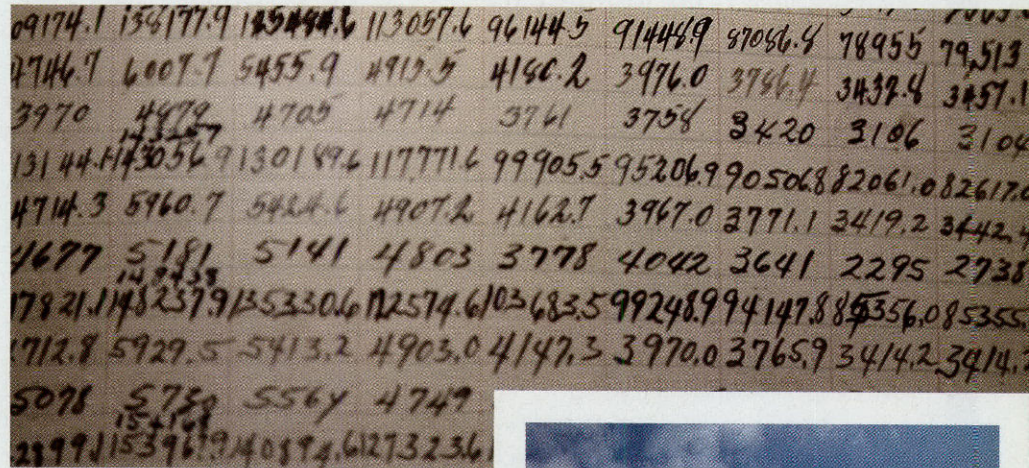 09174.1 138177.9 125484.6 113057.6 96144.5 91448.9 87086.8 78955 79,513
4746.7 6007.7 5455.9 4915.5 4180.2 3976.0 3786.4 3432.8 3457.1
3970 4879 4705 4714 3761 3758 3420 3106 3104
143257
13144.1 143056.9 130189.6 117,771.6 99905.5 95206.9 90506.8 82061.0 82617.0
4714.3 5960.7 5424.6 4907.2 4162.7 3967.0 3771.1 3419.2 3442.4
4677 5181 5141 4803 3778 4042 3641 2295 2738
148438
17821.1 148237.9 135330.6 122574.6 103683.5 99248.9 94147.8 85356.0 85355.
4712.8 5929.5 5413.2 4903.0 4147.3 3970.0 3765.9 3414.2 3414.2
5078 5730 5564 4749
154168
22899.1 153967.9 140894.6 127323.6